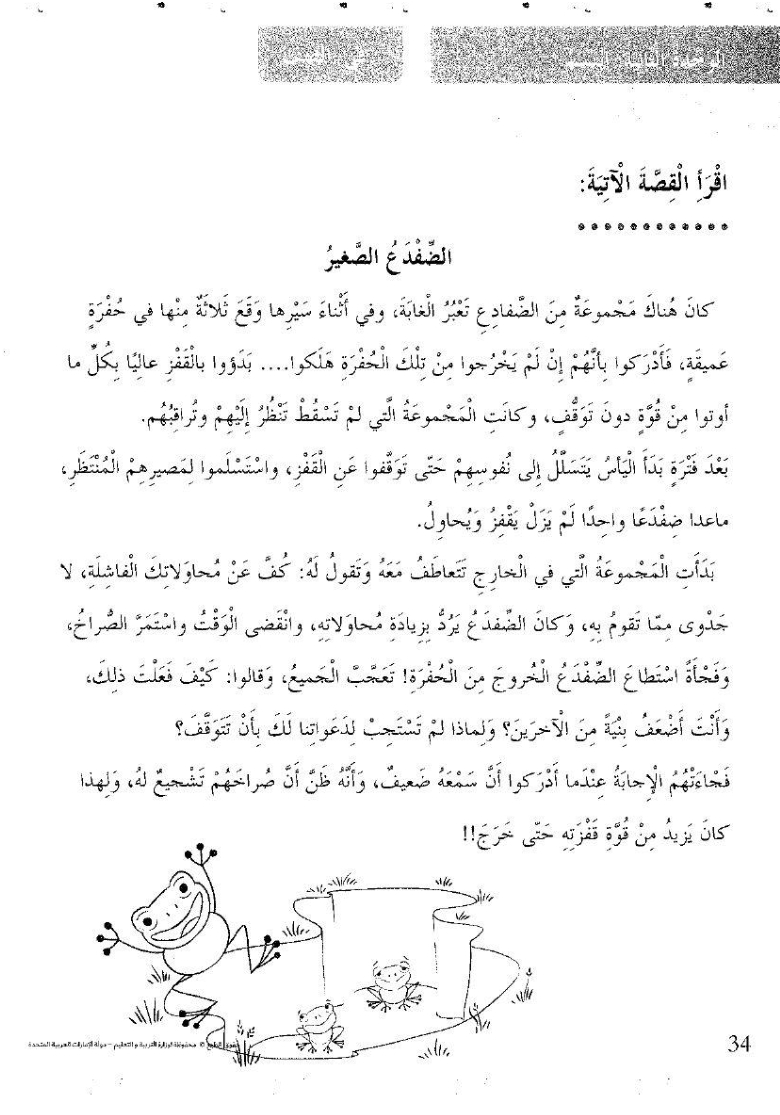 اقْرَأِ الْقِصَّةَ الْآتِيَةَ:
الضِّفْدَعُ الصَّغيرُ
كانَ هُناكَ مَجْموعَةٌ مِنَ الضَّفادِعِ تَعْبُرُ الْغابَةَ، وفي أَثْناءَ سَيْرِها وَقَعَ ثَلاثَةٌ مِنْها في حُفْرَةٍ
عَميقَةٍ، فَأَدْرَكوا بأنَّهُمْ إنْ لَمْ يَخْرُجوا مِنْ تِلْكَ الْحُفْرَةِ هَلَكوا.... بَدَؤوا بالْقَفْزِ عاليًا بِكُلِّ ما
أوتوا مِنْ قُوَّةٍ دونَ تَوَقُّفٍ، وكانَتِ الْمَجْموعَةُ الَّتي لمْ تَسْقُطْ تَنْظُرُ إِلَيْهِمْ وتُراقِبُهُم.
بَعْدَ فَتْرَةٍ بَدَأَ الْيَأسُ يَتَسَلَّلُ إلى نُفوسِهِمْ حَتّى تَوَقَّفوا عَنِ الْقَفْزِ، واسْتَسْلَموا لِمَصيرِهِمْ الْمُنْتَظَرِ،
ماعدا ضِفْدَعًا واحِدًا لَمْ يَزَلْ يَقْفِزُ وَيُحاوِلُ.
بَدَأَتِ الْمَجْموعَةُ الَّتي في الْخارِجِ تَتَعاطَفُ مَعَهُ وَتَقولُ لَهُ: كُفَّ عَنْ مُحاوَلاتِكَ الْفاشِلَةِ، لا
جَدْوى مِمّا تَقومُ بِهِ، وَكانَ الضِّفدَعُ يَرُدُّ بِزِيادَةِ مُحاوَلاتِهِ، وانْقَضى الْوَقْتُ واسْتَمَرَّ الصُّراخُ،
وَفَجْأَةً اسْتَطاعَ الضِّفْدَعُ الْخُروجَ مِنَ الْحُفْرَةِ! تَعَجَّبَ الْجَميعُ، وَقالوا: كَيْفَ فَعَلْتَ ذلِكَ،
وَأَنْتَ أَضْعَفُ بِنْيَةً مِنَ الْآخَرَينَ؟ وَلِماذا لمْ تَسْتَجِبْ لِدَعَواتِنا لَكَ بِأَنْ تَتَوَقَّفَ؟
فَجاءَتْهُمُ الْإجابَةُ عِنْدَما أَدْرَكوا أَنَّ سَمْعَهُ ضَعيفٌ، وَأَنَّهُ ظَنَّ أَنَّ صُراخَهُمْ تَشْجيعٌ لهُ، وَلِهذا
كانَ يَزيدُ مِنْ قُوَّةِ قَفْزَتِهِ حَتّى خَرَجَ!!
© محفوظة لوزارة التربية و التعليم – دولة الإمارات العربية المتحدة
34